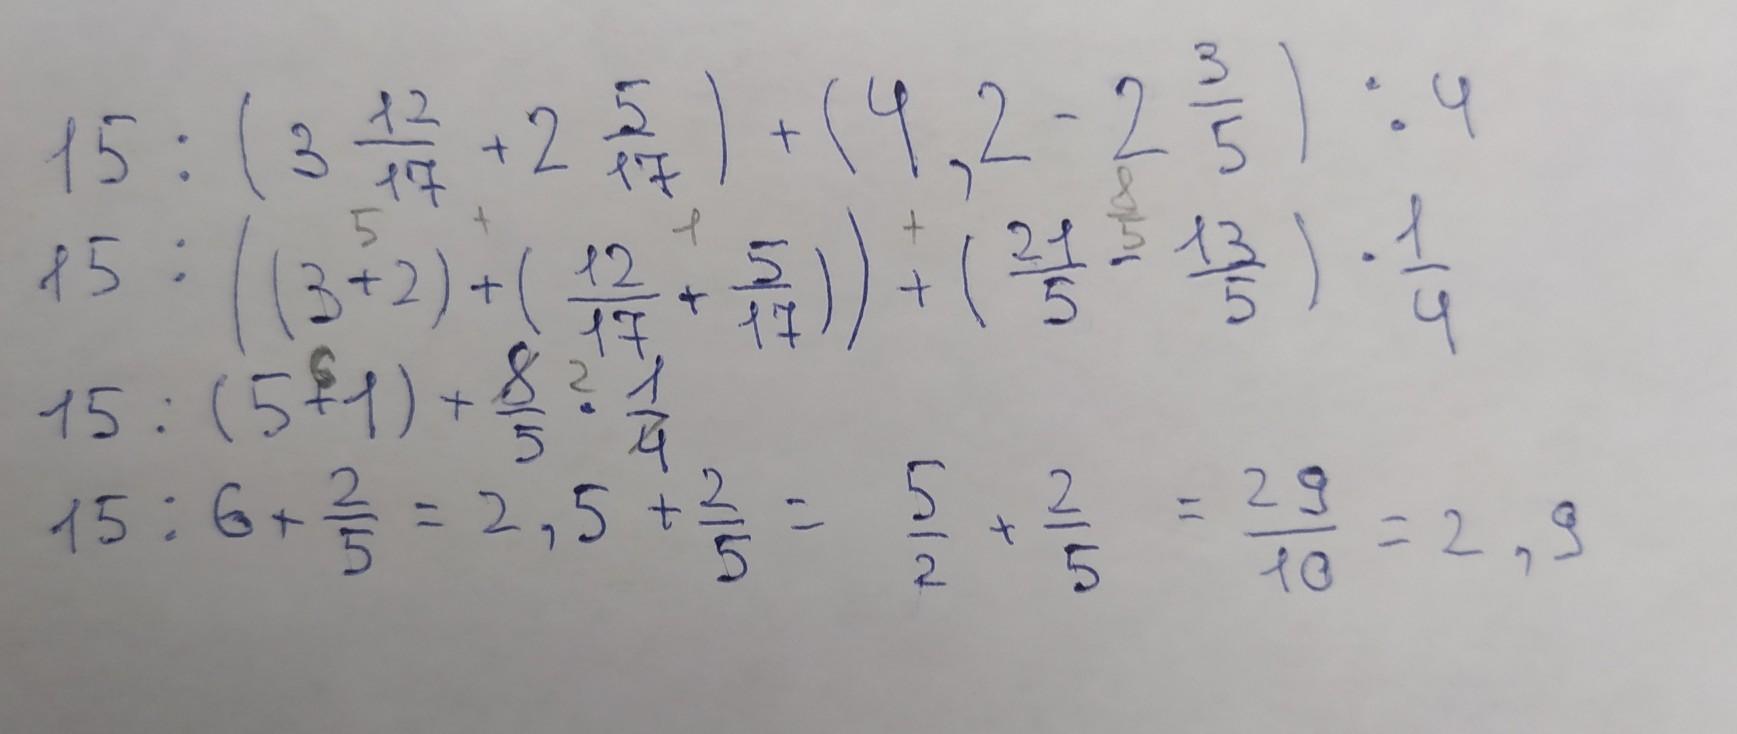 15 : (3 12/17 + 2 5/17) + (4,2 - 2 3/5) : 4
5 + 1 + 8/5
15 : ((3+2) + (12/17 + 5/17)) + (21/5 - 13/5) · 1/4
6 2
15 : (5+1) + 8/5 · 1/4
15 : 6 + 2/5 = 2,5 + 2/5 = 5/2 + 2/5 = 29/10 = 2,9